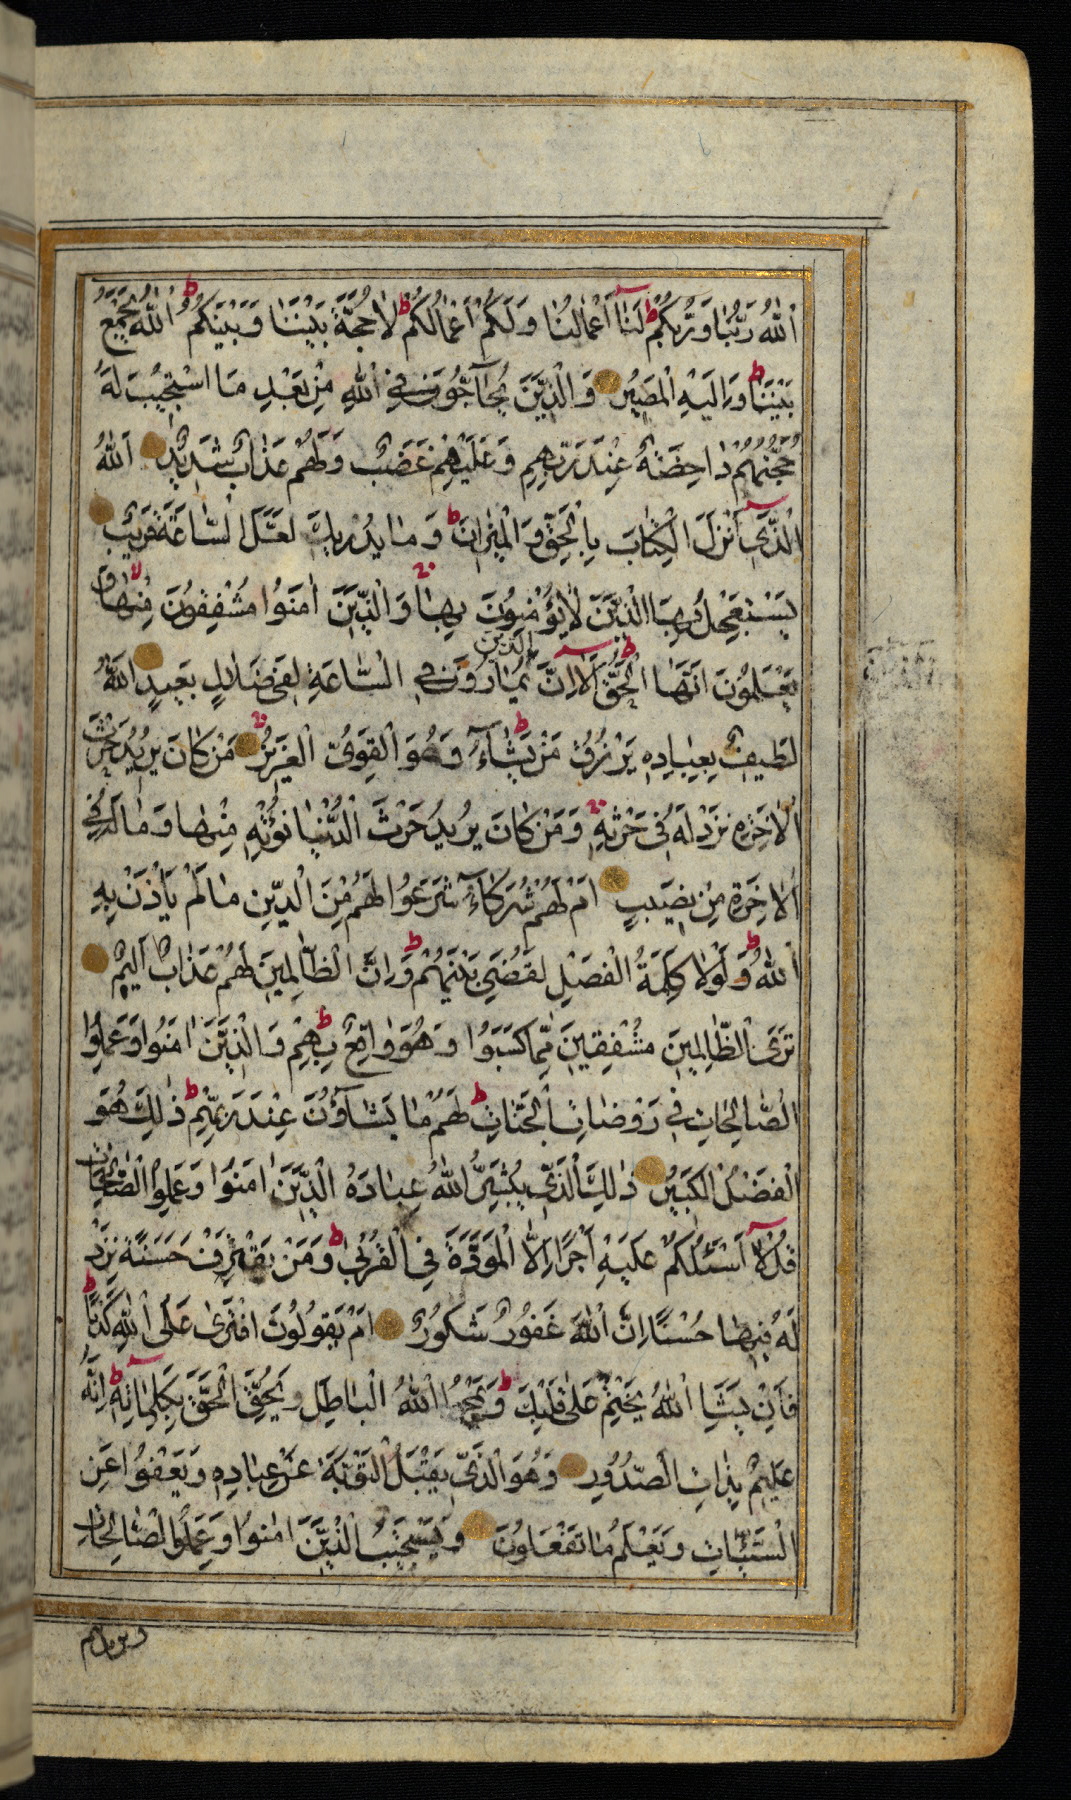 اَللّٰهُ رَبُّنَا وَرَبُّكُمْ ط لَنَآ اَعْمَالُنَا وَلَكُمْ اَعْمَالُكُمْ ط لَا حُجَّةَ بَيْنَنَا وَبَيْنَكُمُ ط اللّٰهُ يَجْمَعُ
بَيْنَنَا ط وَاِلَيْهِ الْمَصِيْرُ وَالَّذِيْنَ يُحَآجُّوْنَ فِي اللّٰهِ مِنْ بَعْدِ مَا اسْتُجِيْبَ لَهُ
حُجَّتُهُمْ دَاحِضَةٌ عِنْدَ رَبِّهِمْ وَعَلَيْهِمْ غَضَبٌ وَلَهُمْ عَذَابٌ شَدِيْدٌ اَللّٰهُ
الَّذِيْٓ اَنْزَلَ الْكِتَابَ بِالْحَقِّ وَالْمِيْزَانَ ط وَمَا يُدْرِيْكَ لَعَلَّ السَّاعَةَ قَرِيْبٌ
يَسْتَعْجِلُ بِهَا الَّذِيْنَ لَا يُؤْمِنُوْنَ بِهَا وَالَّذِيْنَ اٰمَنُوْا مُشْفِقُوْنَ مِنْهَا لا وَ
يَعْلَمُوْنَ اَنَّهَا الْحَقُّ ط اَلَآ اِنَّ الَّذِيْنَ يُمَارُوْنَ فِي السَّاعَةِ لَفِيْ ضَلَالٍ بَعِيْدٍ اَللّٰهُ
لَطِيْفٌ بِعِبَادِهِ يَرْزُقُ مَنْ يَشَآءُ ط وَهُوَ الْقَوِيُّ الْعَزِيْزُ مَنْ كَانَ يُرِيْدُ حَرْثَ
الْاٰخِرَةِ نَزِدْ لَهُ فِيْ حَرْثِهِ وَمَنْ كَانَ يُرِيْدُ حَرْثَ الدُّنْيَا نُؤْتِهِ مِنْهَا وَمَا لَهُ فِي
الْاٰخِرَةِ مِنْ نَصِيْبٍ اَمْ لَهُمْ شُرَكَآءُ شَرَعُوْا لَهُمْ مِنَ الدِّيْنِ مَا لَمْ يَأْذَنْ بِهِ
اللّٰهُ ط وَلَوْلَا كَلِمَةُ الْفَصْلِ لَقُضِيَ بَيْنَهُمْ ط وَاِنَّ الظَّالِمِيْنَ لَهُمْ عَذَابٌ اَلِيْمٌ
تَرَى الظَّالِمِيْنَ مُشْفِقِيْنَ مِمَّا كَسَبُوْا وَهُوَ وَاقِعٌ بِهِمْ ط وَالَّذِيْنَ اٰمَنُوْا وَعَمِلُوا
الصَّالِحَاتِ فِيْ رَوْضَاتِ الْجَنَّاتِ ط لَهُمْ مَا يَشَآؤُنَ عِنْدَ رَبِّهِمْ ط ذٰلِكَ هُوَ
الْفَضْلُ الْكَبِيْرُ ذٰلِكَ الَّذِيْ يُبَشِّرُ اللّٰهُ عِبَادَهُ الَّذِيْنَ اٰمَنُوْا وَعَمِلُوا الصَّالِحَاتِ
قُلْ لَآ اَسْئَلُكُمْ عَلَيْهِ اَجْرًا اِلَّا الْمَوَدَّةَ فِي الْقُرْبٰى ط وَمَنْ يَقْتَرِفْ حَسَنَةً نَزِدْ
لَهُ فِيْهَا حُسْنًا اِنَّ اللّٰهَ غَفُوْرٌ شَكُوْرٌ اَمْ يَقُوْلُوْنَ افْتَرٰى عَلَى اللّٰهِ كَذِبًا ط
فَاِنْ يَشَاِ اللّٰهُ يَخْتِمْ عَلٰى قَلْبِكَ ط وَيَمْحُ اللّٰهُ الْبَاطِلَ وَيُحِقُّ الْحَقَّ بِكَلِمَاتِهِ ط اِنَّهُ
عَلِيْمٌ بِذَاتِ الصُّدُوْرِ وَهُوَ الَّذِيْ يَقْبَلُ التَّوْبَةَ عَنْ عِبَادِهِ وَيَعْفُوْا عَنِ
السَّيِّاٰتِ وَيَعْلَمُ مَا تَفْعَلُوْنَ وَيَسْتَجِيْبُ الَّذِيْنَ اٰمَنُوْا وَعَمِلُوا الصَّالِحَاتِ
ويزيدهم